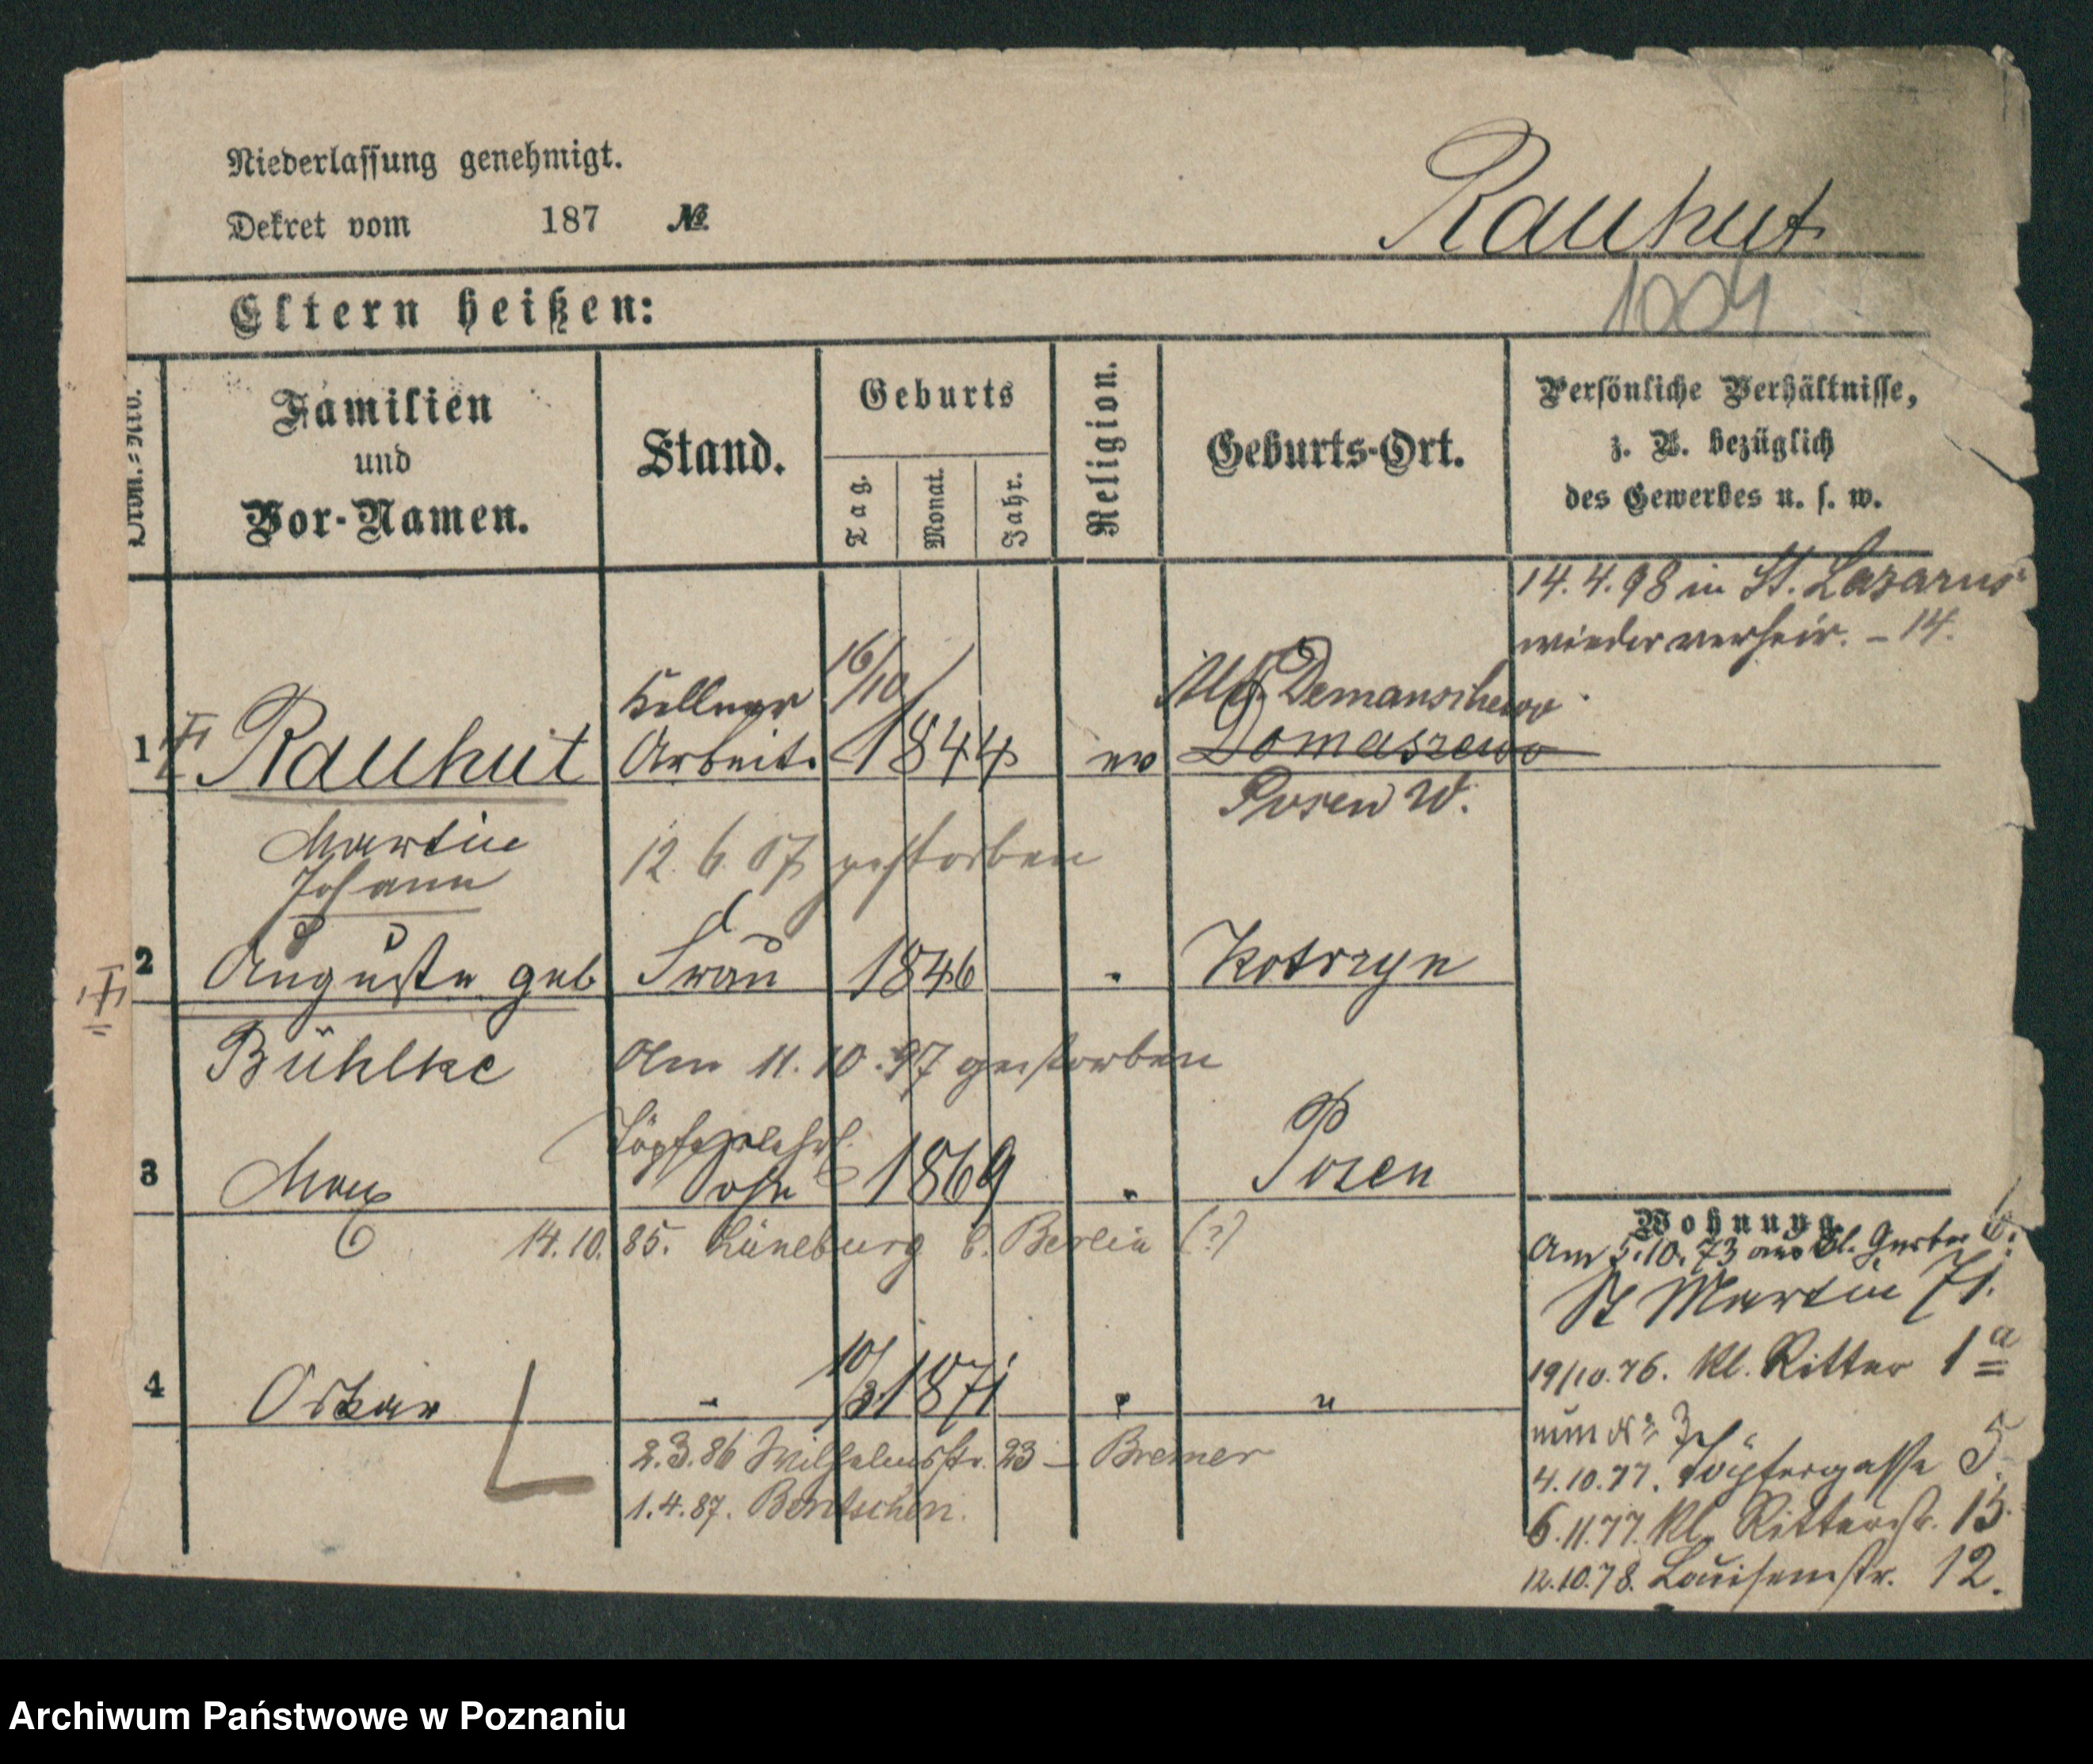 Niederlassung genehmigt.
Dekret vom 187 №
Rauhut
1004
Eltern heißen:
Ordn.-Nro.
Familien
und
Vor-Namen.
Stand.
Geburts
Tag.
Monat.
Jahr.
Religion.
Geburts-Ort.
Persönliche Verhältnisse,
z. B. bezüglich
des Gewerbes u. s. w.
14.4.98 in St. Lazarus
wieder verheir. – 14.
1 Rauhut
Martin
Johann
Kellner
Arbeit.
16/10 1844
ev
Demanschewo
Domaszewo
Posen W.
12.6.07 gestorben
2 Auguste geb
Bühlke
Frau 1846 " Kotrzyn
Am 11.10.97 gestorben
3 Max
Töpferlehrl.
Sohn 1869 " Posen
14.10.85. Lüneburg b. Berlin (?)
4 Oskar
" 10/3 1871 " "
2.3.86 Wilhelmstr. 23 – Bremer
1.4.87. Bentschen.
Wohnung
Am 5.10.73 aus kl. Gerber 6.
St Martin 71.
19/10.76. Kl. Ritter 1a
nun No 3
4.10.77. Töpfergasse 5
6.11.77. Kl. Ritterstr. 15.
12.10.78. Louisenstr. 12.
Archiwum Państwowe w Poznaniu